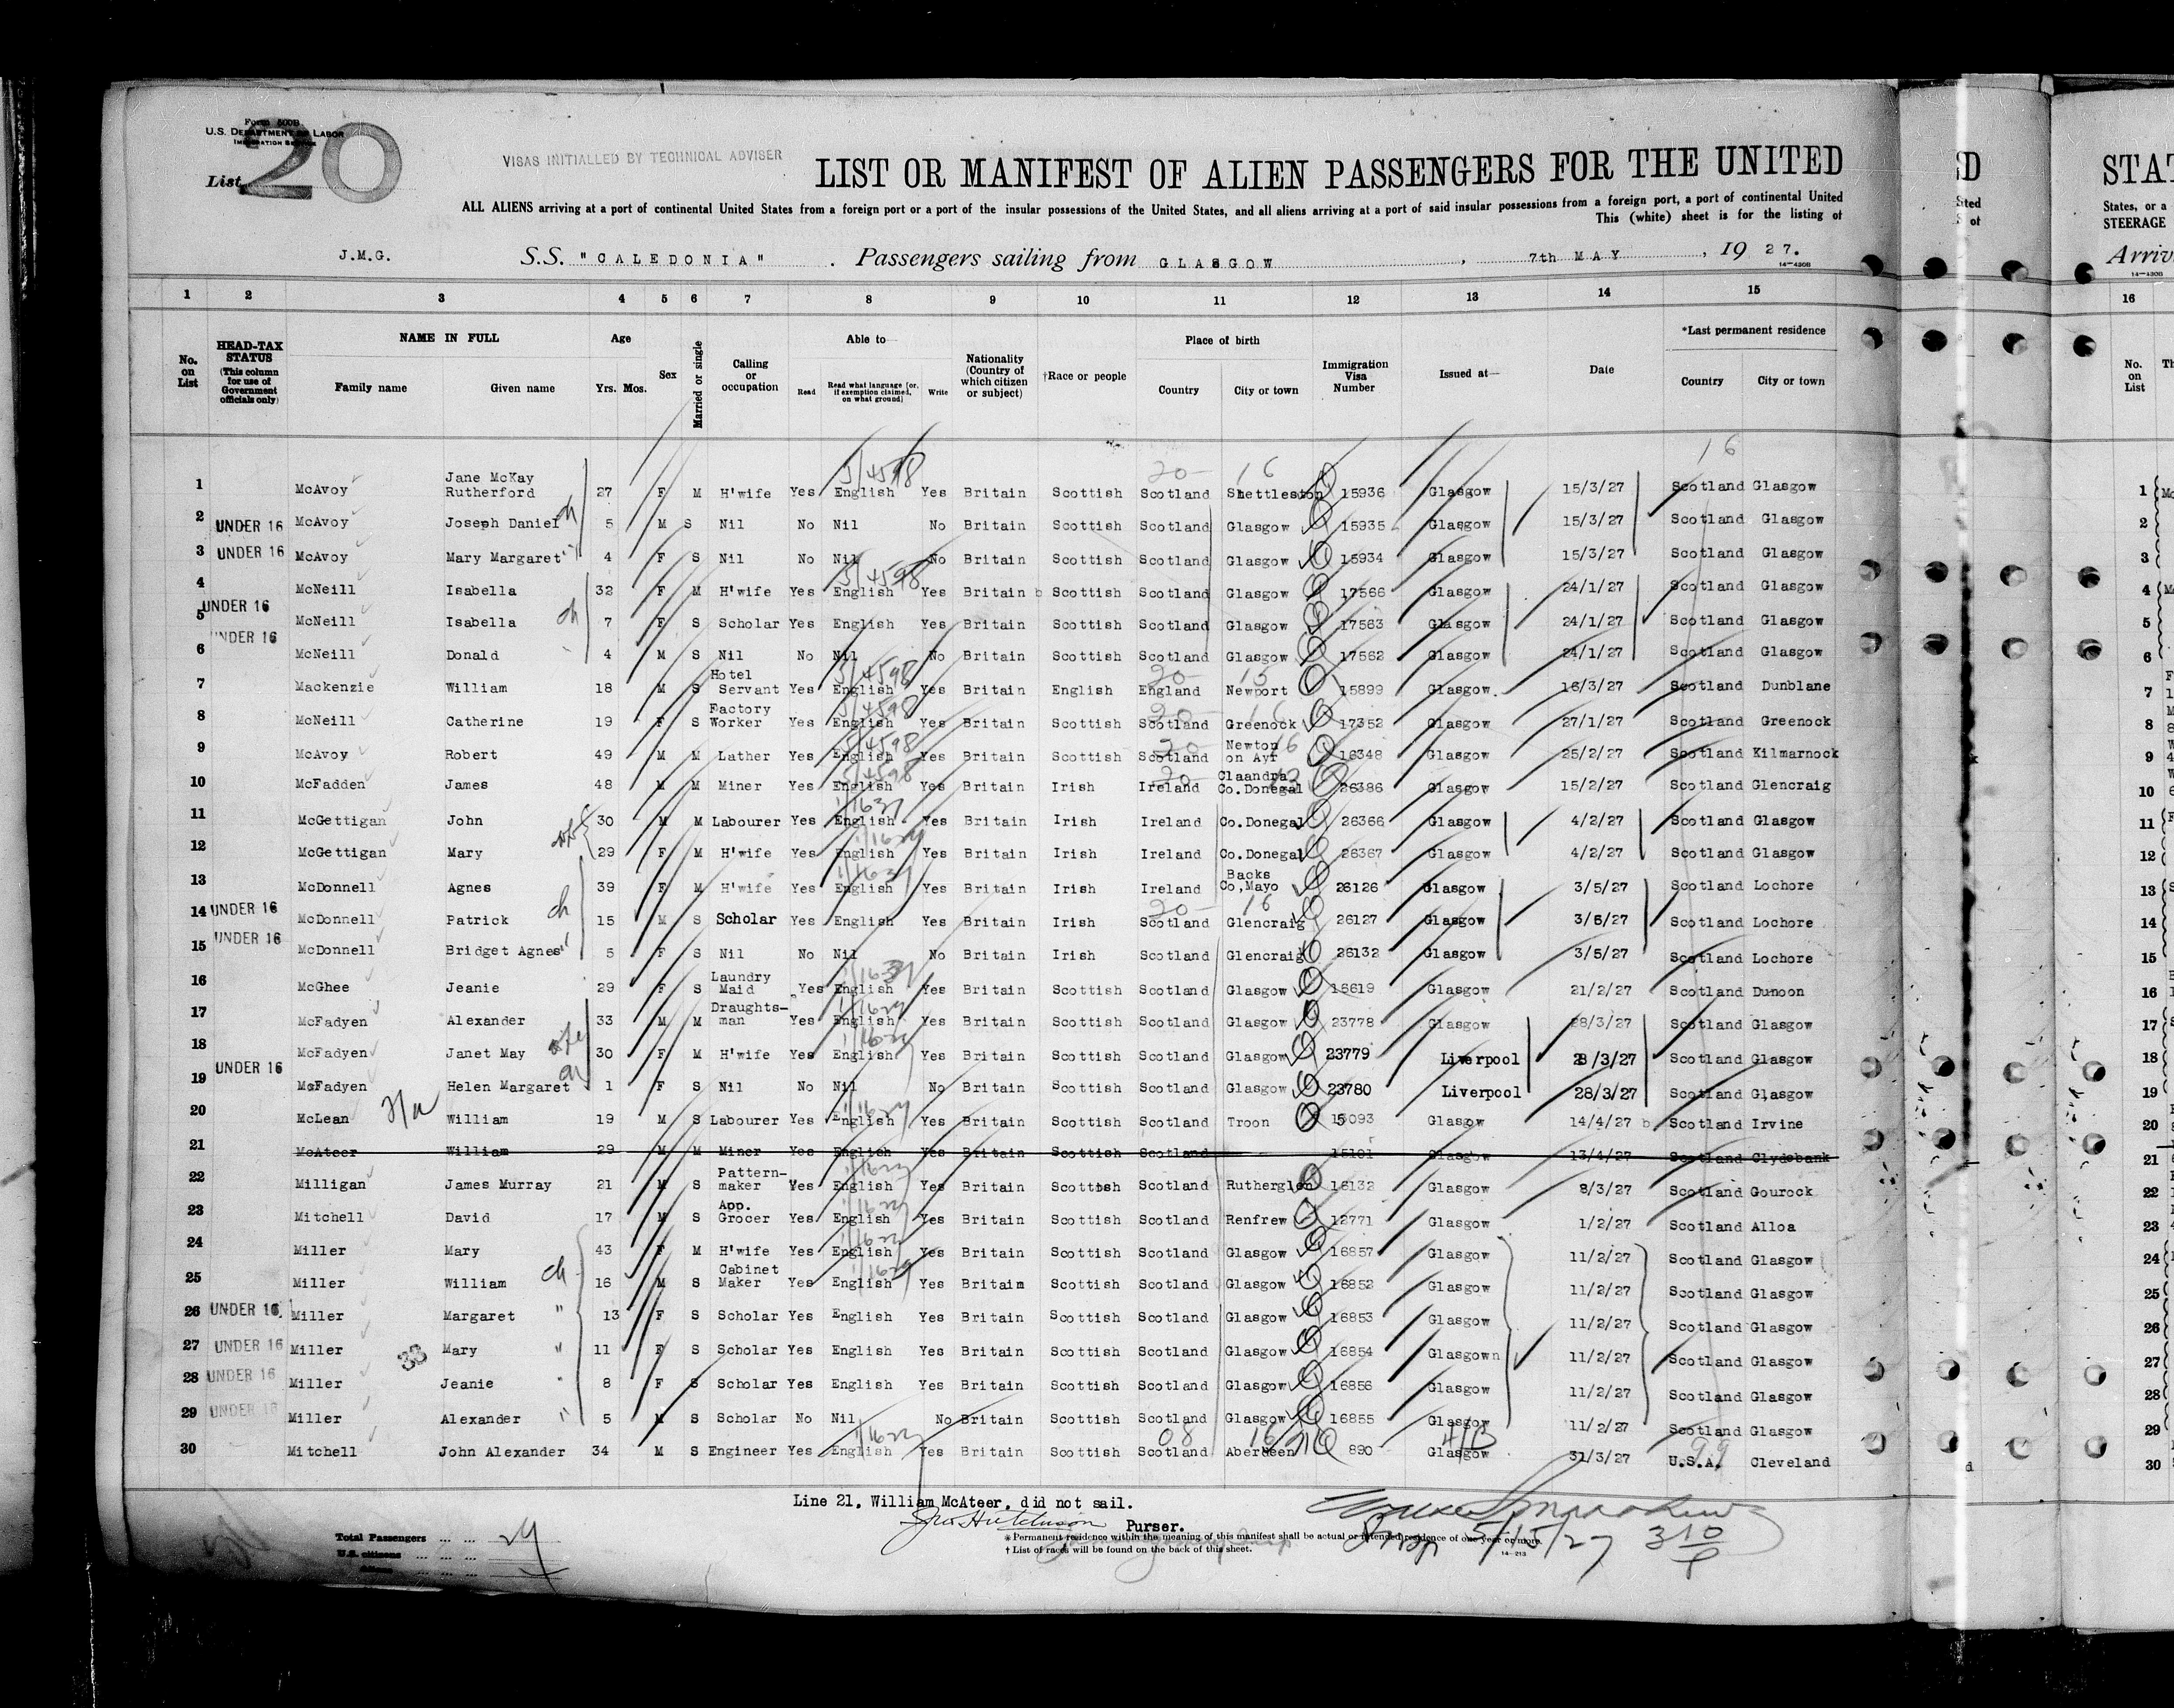 Form 500B
U.S. DEPARTMENT OF LABOR
IMMIGRATION SERVICE
List 20
VISAS INITIALLED BY TECHNICAL ADVISER
LIST OR MANIFEST OF ALIEN PASSENGERS FOR THE UNITED
ALL ALIENS arriving at a port of continental United States from a foreign port or a port of the insular possessions of the United States, and all aliens arriving at a port of said insular possessions from a foreign port, a port of continental United
This (white) sheet is for the listing of
J.M.G. S.S. "CALEDONIA" . Passengers sailing from GLASGOW , 7th MAY , 19 27.
14-430B
1 2 3 4 5 6 7 8 9 10 11 12 13 14 15
No. on List
HEAD-TAX STATUS (This column for use of Government officials only)
NAME IN FULL Family name Given name
Age Yrs. Mos.
Sex
Married or single
Calling or occupation
Able to— Read Read what language (or, if exemption claimed, on what ground) Write
Nationality (Country of which citizen or subject)
†Race or people
Place of birth Country City or town
Immigration Visa Number
Issued at—
Date
*Last permanent residence Country City or town
16
1 McAvoy Jane McKay Rutherford 27 F M H'wife Yes English Yes Britain Scottish Scotland Shettleston 15936 Glasgow 15/3/27 Scotland Glasgow
2 UNDER 16 McAvoy Joseph Daniel ch 5 M S Nil No Nil No Britain Scottish Scotland Glasgow 15935 Glasgow 15/3/27 Scotland Glasgow
3 UNDER 16 McAvoy Mary Margaret " 4 F S Nil No Nil No Britain Scottish Scotland Glasgow 15934 Glasgow 15/3/27 Scotland Glasgow
4 McNeill Isabella 32 F M H'wife Yes English Yes Britain Scottish Scotland Glasgow 17566 Glasgow 24/1/27 Scotland Glasgow
5 UNDER 16 McNeill Isabella ch 7 F S Scholar Yes English Yes Britain Scottish Scotland Glasgow 17563 Glasgow 24/1/27 Scotland Glasgow
6 UNDER 16 McNeill Donald 4 M S Nil No Nil No Britain Scottish Scotland Glasgow 17562 Glasgow 24/1/27 Scotland Glasgow
7 Mackenzie William 18 M S Hotel Servant Yes English Yes Britain English England Newport 15899 Glasgow. 16/3/27 Scotland Dunblane
8 McNeill Catherine 19 F S Factory Worker Yes English Yes Britain Scottish Scotland Greenock 17352 Glasgow 27/1/27 Scotland Greenock
9 McAvoy Robert 49 M M Lather Yes English Yes Britain Scottish Scotland Newton on Ayr 16348 Glasgow 25/2/27 Scotland Kilmarnock
10 McFadden James 48 M M Miner Yes English Yes Britain Irish Ireland Claandra Co.Donegal 26386 Glasgow 15/2/27 Scotland Glencraig
11 McGettigan John 30 M M Labourer Yes English Yes Britain Irish Ireland Co.Donegal 26366 Glasgow 4/2/27 Scotland Glasgow
12 McGettigan Mary 29 F M H'wife Yes English Yes Britain Irish Ireland Co.Donegal 26367 Glasgow 4/2/27 Scotland Glasgow
13 McDonnell Agnes 39 F M H'wife Yes English Yes Britain Irish Ireland Backs Co,Mayo 26126 Glasgow 3/5/27 Scotland Lochore
14 UNDER 16 McDonnell Patrick ch 15 M S Scholar Yes English Yes Britain Irish Scotland Glencraig 26127 Glasgow 3/5/27 Scotland Lochore
15 UNDER 16 McDonnell Bridget Agnes " 5 F S Nil No Nil No Britain Irish Scotland Glencraig 26132 Glasgow 3/5/27 Scotland Lochore
16 McGhee Jeanie 29 F S Laundry Maid Yes English Yes Britain Scottish Scotland Glasgow 16619 Glasgow 21/2/27 Scotland Dunoon
17 McFadyen Alexander 33 M M Draughts-man Yes English Yes Britain Scottish Scotland Glasgow 23778 Glasgow 28/3/27 Scotland Glasgow
18 McFadyen Janet May wife 30 F M H'wife Yes English Yes Britain Scottish Scotland Glasgow 23779 Liverpool 28/3/27 Scotland Glasgow
19 UNDER 16 McFadyen Helen Margaret ch 1 F S Nil No Nil No Britain Scottish Scotland Glasgow 23780 Liverpool 28/3/27 Scotland Glasgow
20 McLean William 19 M S Labourer Yes English Yes Britain Scottish Scotland Troon 15093 Glasgow 14/4/27 Scotland Irvine
21 McAteer William 29 M M Miner Yes English Yes Britain Scottish Scotland 15101 Glasgow 13/4/27 Scotland Clydebank
22 Milligan James Murray 21 M S Pattern-maker Yes English Yes Britain Scottish Scotland Rutherglen 16132 Glasgow 8/3/27 Scotland Gourock
23 Mitchell David 17 M S App. Grocer Yes English Yes Britain Scottish Scotland Renfrew 12771 Glasgow 1/2/27 Scotland Alloa
24 Miller Mary 43 F M H'wife Yes English Yes Britain Scottish Scotland Glasgow 16857 Glasgow 11/2/27 Scotland Glasgow
25 Miller William ch 16 M S Cabinet Maker Yes English Yes Britaim Scottish Scotland Glasgow 16852 Glasgow 11/2/27 Scotland Glasgow
26 UNDER 16. Miller Margaret " 13 F S Scholar Yes English Yes Britain Scottish Scotland Glasgow 16853 Glasgow 11/2/27 Scotland Glasgow
27 UNDER 16 Miller Mary " 11 F S Scholar Yes English Yes Britain Scottish Scotland Glasgow 16854 Glasgown 11/2/27 Scotland Glasgow
28 UNDER 16 Miller Jeanie " 8 F S Scholar Yes English Yes Britain Scottish Scotland Glasgow 16856 Glasgow 11/2/27 Scotland Glasgow
29 UNDER 16 Miller Alexander " 5 M S Scholar No Nil No Britain Scottish Scotland Glasgow 16855 Glasgow 11/2/27 Scotland Glasgow
30 Mitchell John Alexander 34 M S Engineer Yes English Yes Britain Scottish Scotland Aberdeen 890 Glasgow 31/3/27 U.S.A. Cleveland
Line 21, William McAteer, did not sail.
Jno Hutchinson Purser.
* Permanent residence within the meaning of this manifest shall be actual or intended residence of one year or more.
† List of races will be found on the back of this sheet.
14-213
5/15/27
Total Passengers ... ... 29
U.S. citizens ... ... ...
STAT
States, or a
STEERAGE
Arriv
14-430B
16
No. on List
1
2
3
4
5
6
7
8
9
10
11
12
13
14
15
16
17
18
19
20
21
22
23
24
25
26
27
28
29
30